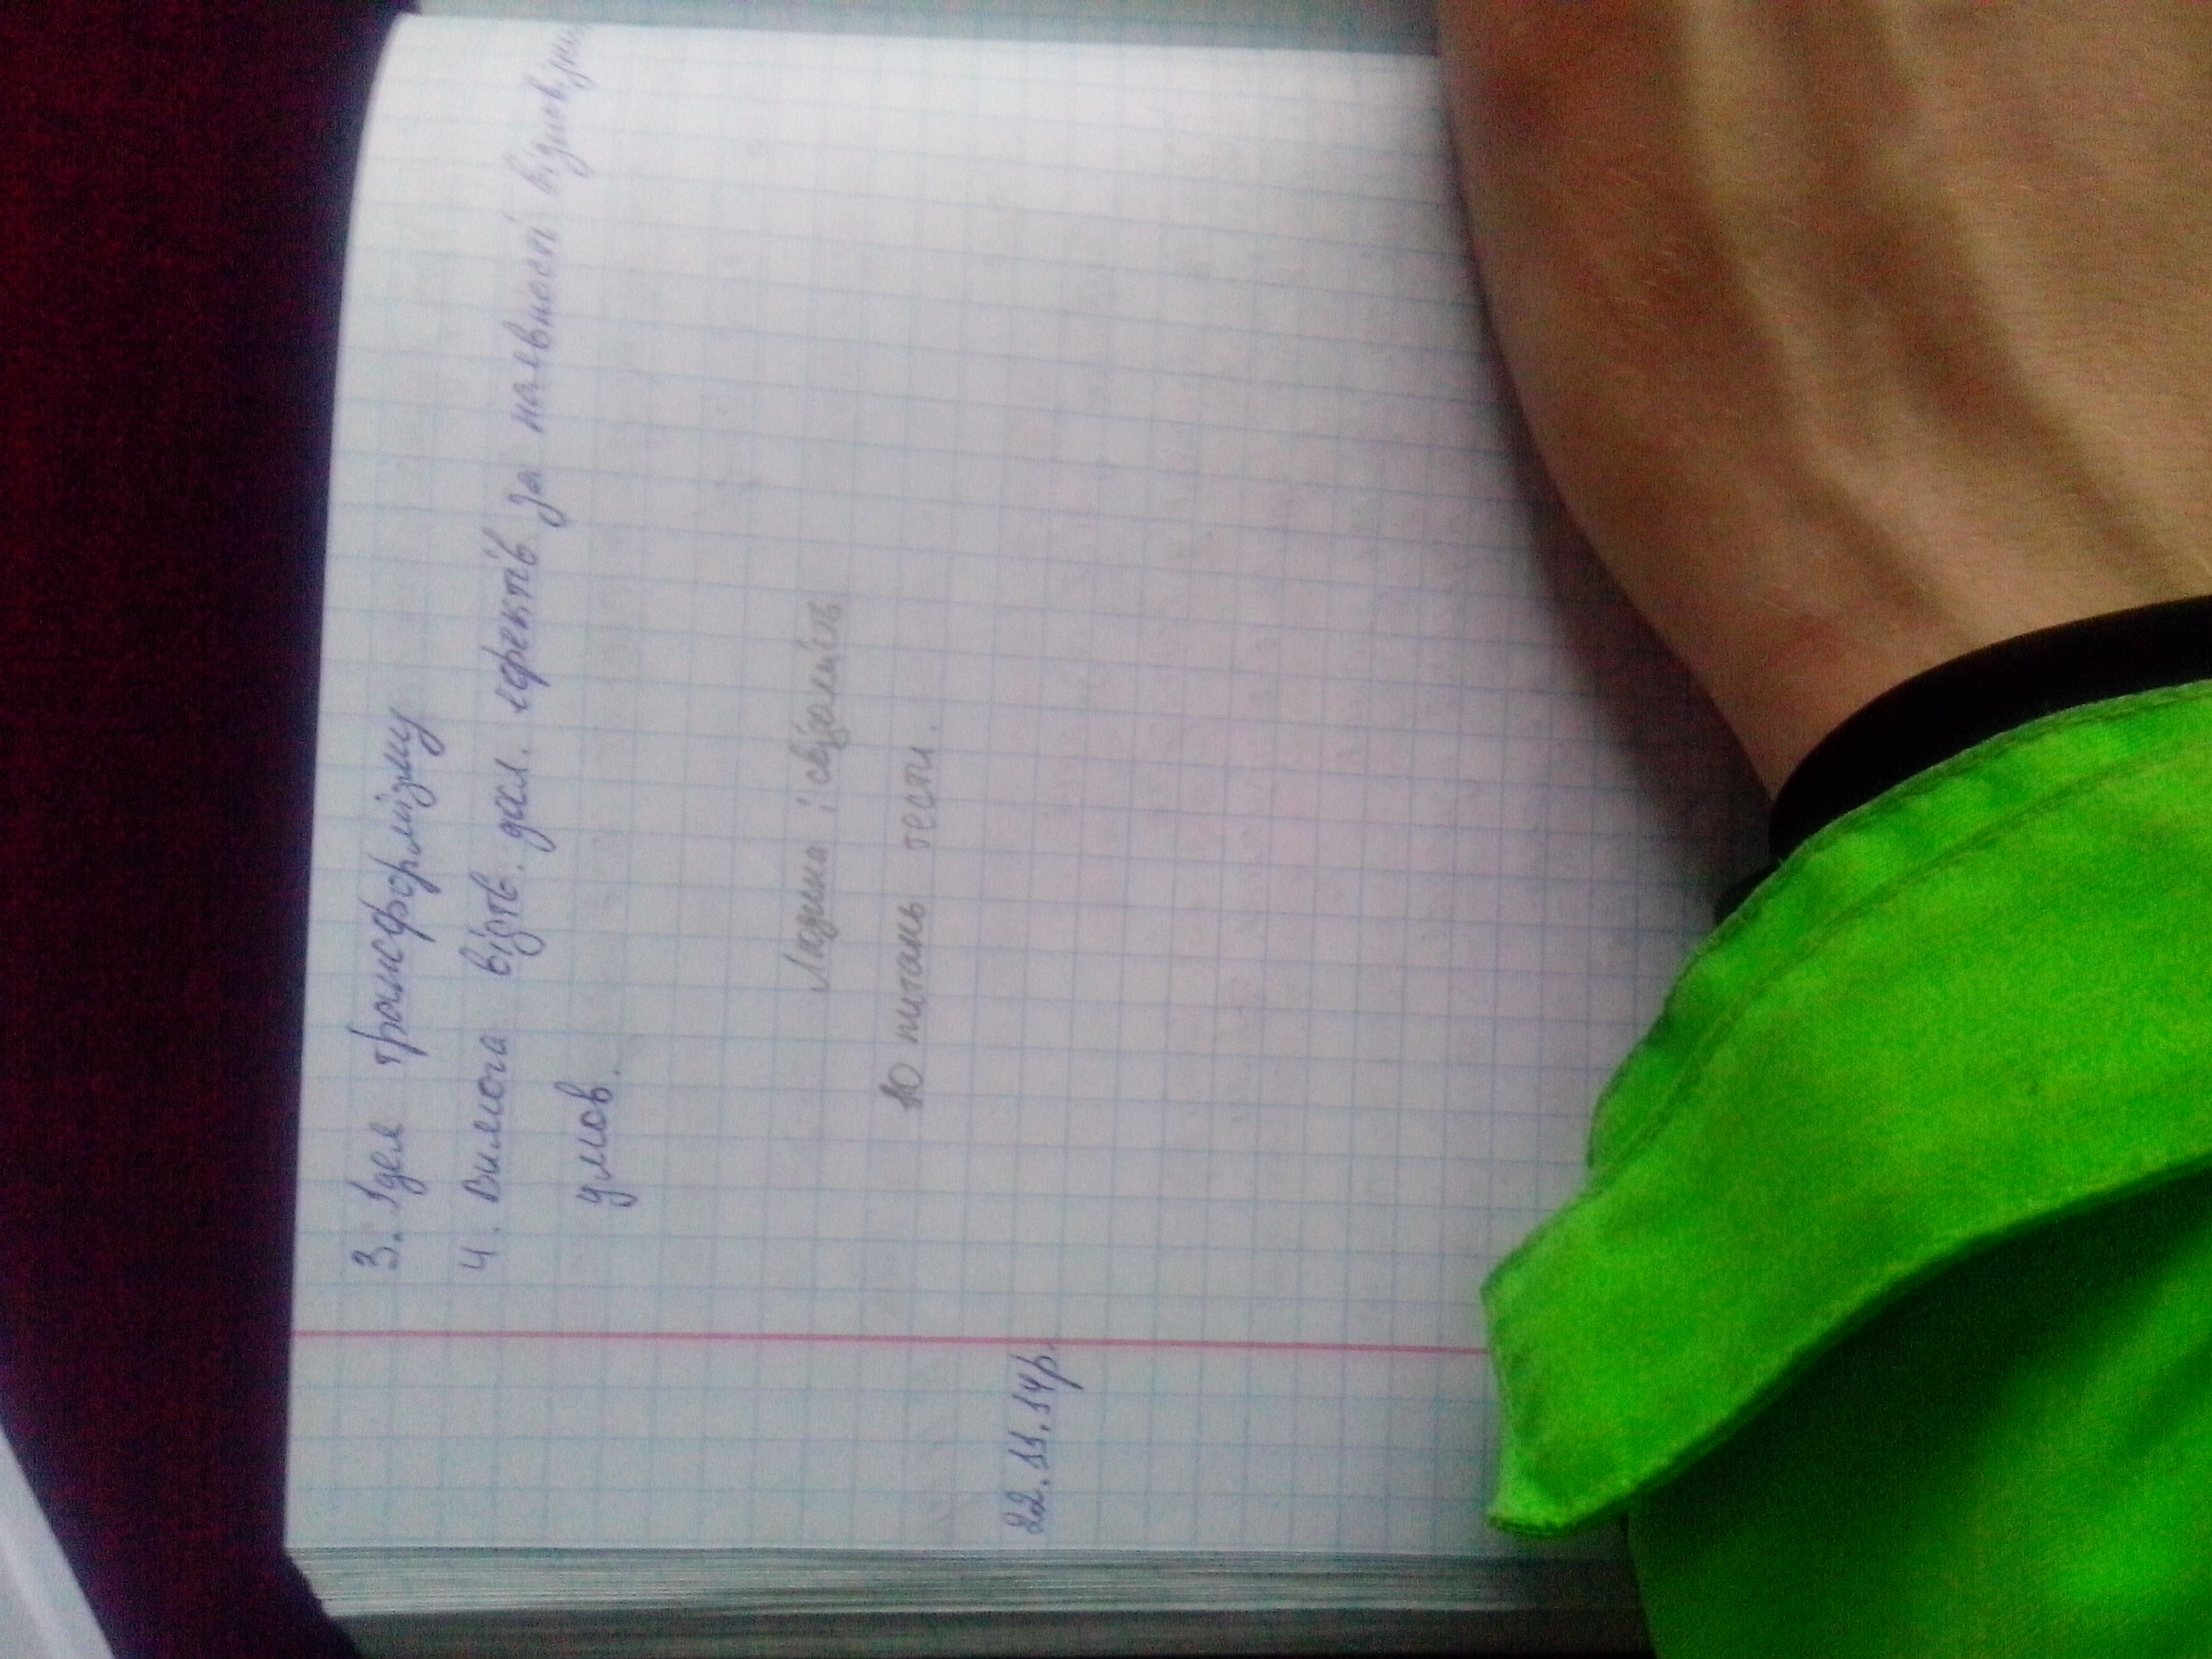 3. Ідея трансформізму
4. Вимога відтв. досл. ефектів за наявності відповідних
умов.
Людина і свідомість
10 питань тести.
22.11.14р.